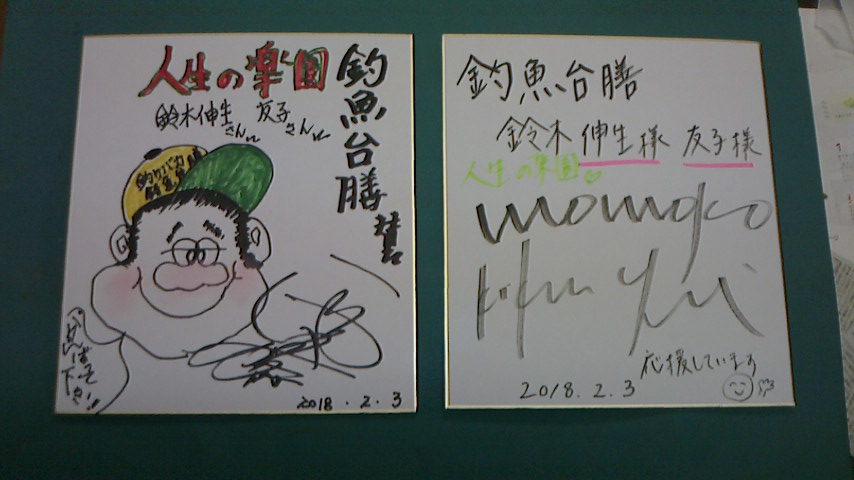 人生の楽園
鈴木伸生さん
友子さん
釣魚台膳
釣りバカ
がんばって
下さい!!
2018.2.3
釣魚台膳
鈴木伸生様 友子様
人生の楽園♡
momoko
応援しています
2018.2.3